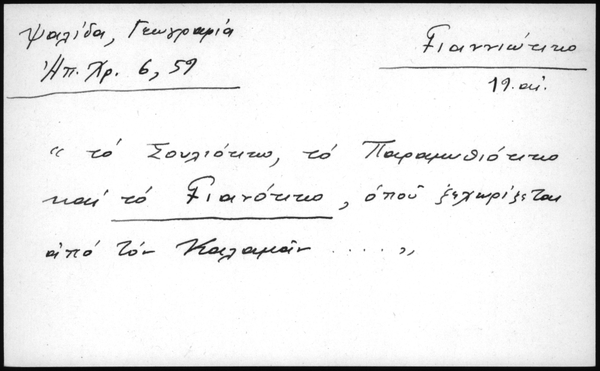 Ψαλίδα, Γεωγραφία
Ἠπ. Χρ. 6, 59
Γιαννιώτικο
19. αἰ.
“ τό Σουλιότικο, τό Παραμυθιότικο
καί τό Γιανότικο, ὁποῦ ξεχωρίζεται
ἀπό τόν Καλαμᾶν ..... ”